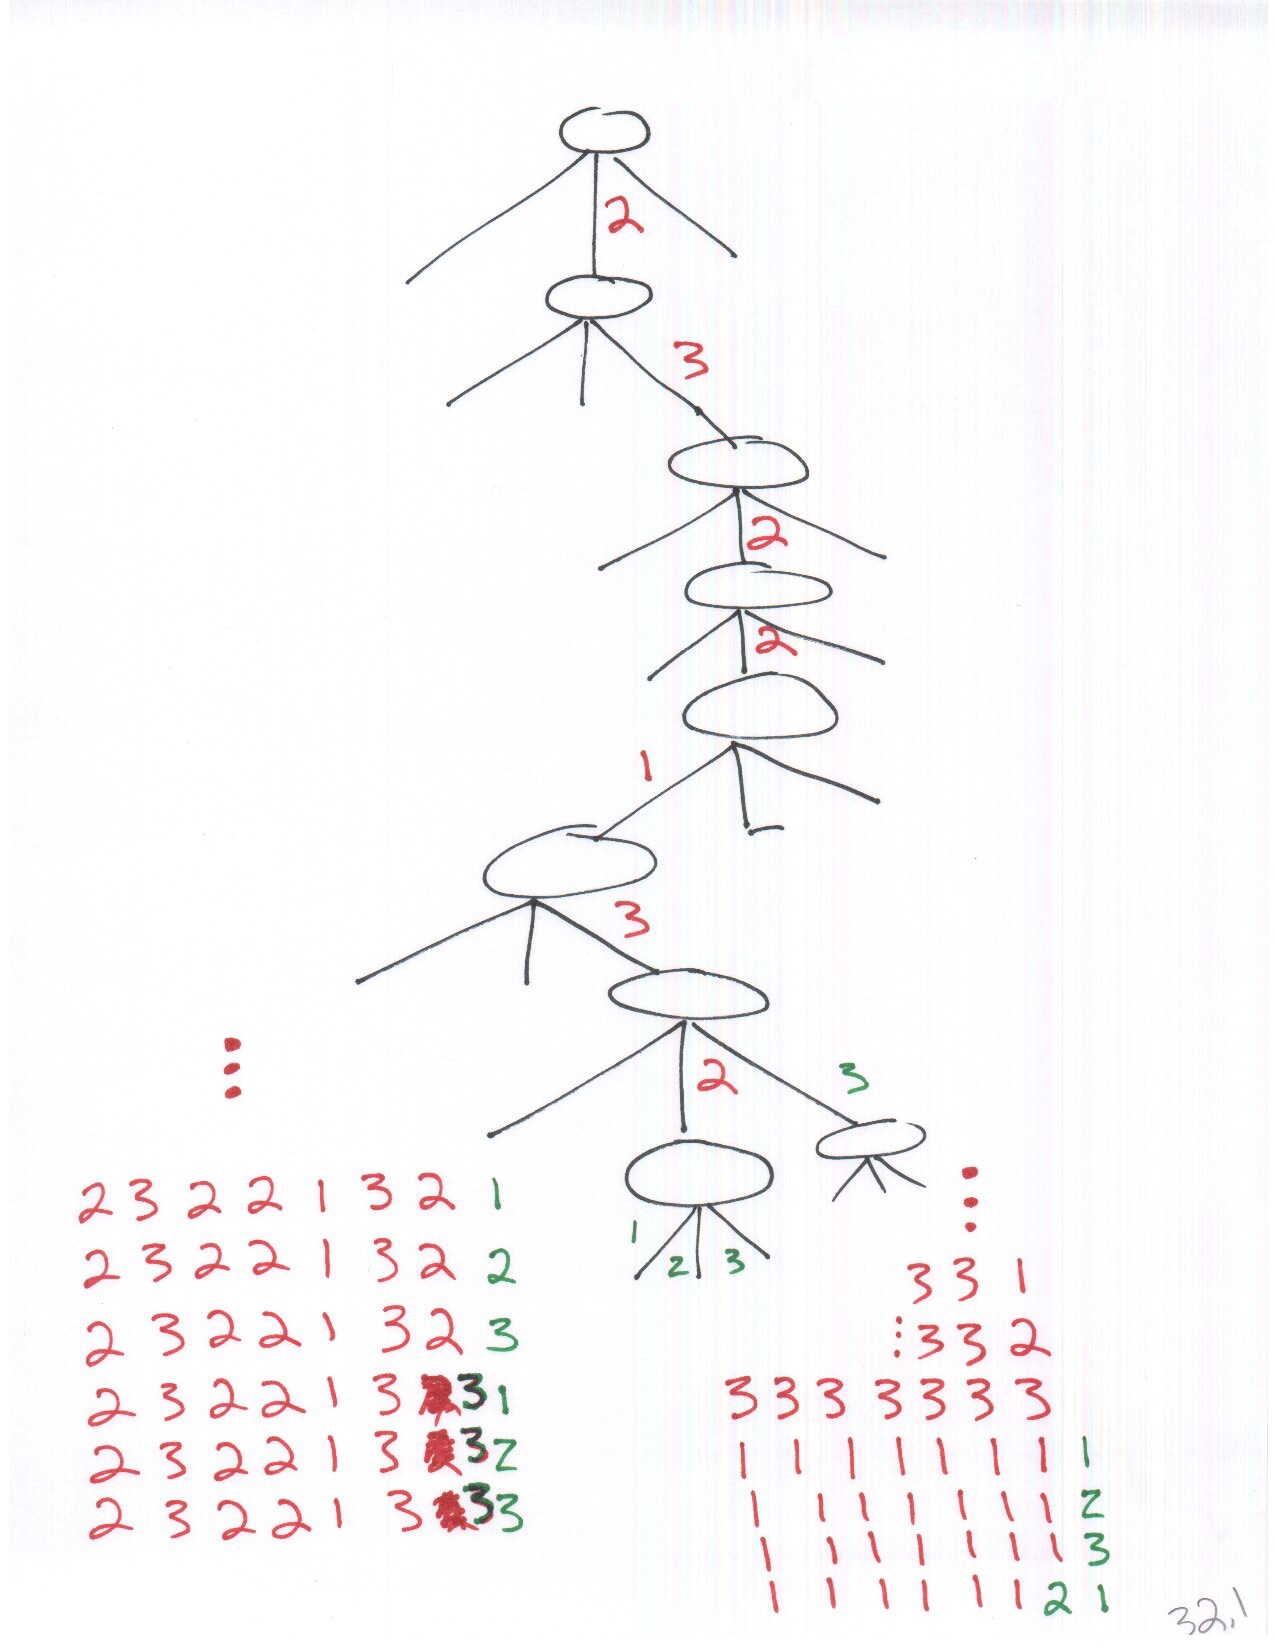 2
3
2
2
1
3
2
3
1 2 3
2 3 2 2 1 3 2 1
2 3 2 2 1 3 2 2
2 3 2 2 1 3 2 3
2 3 2 2 1 3 3 1
2 3 2 2 1 3 3 2
2 3 2 2 1 3 3 3
3 3 1
3 3 2
3 3 3 3 3 3 3
1 1 1 1 1 1 1 1
1 1 1 1 1 1 1 2
1 1 1 1 1 1 1 3
1 1 1 1 1 1 2 1
32.1